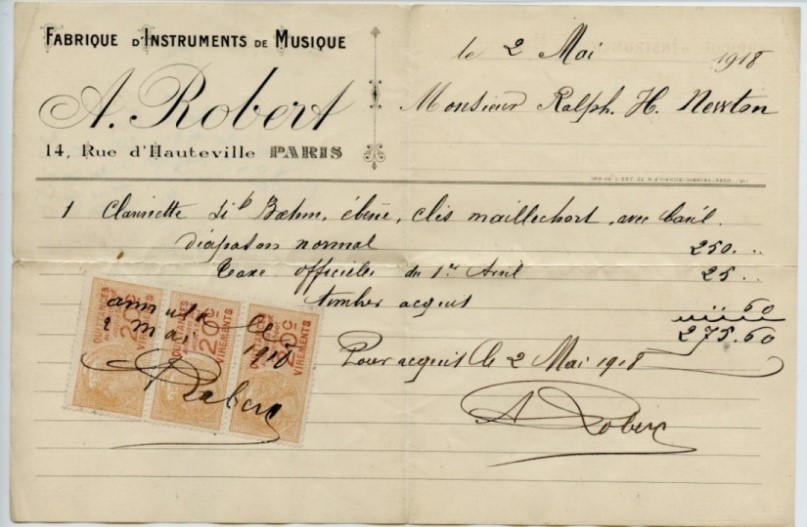 FABRIQUE D'INSTRUMENTS DE MUSIQUE
A. Robert
14, Rue d'Hauteville PARIS
le 2 Mai 1918
Monsieur Ralph. H. Newton
1 Clarinette Si b Bœhm, ébène, clés maillechort, avec
diapason normal 250. ..
taxe officielle du 1er Avril 25 ..
timbre acquit .. 60
275.60
Pour acquit le 2 Mai 1918
A Robert
QUITTANCES VIREMENTS
QUITTANCES VIREMENTS
QUITTANCES VIREMENTS
le
2 mai 1918
Robert